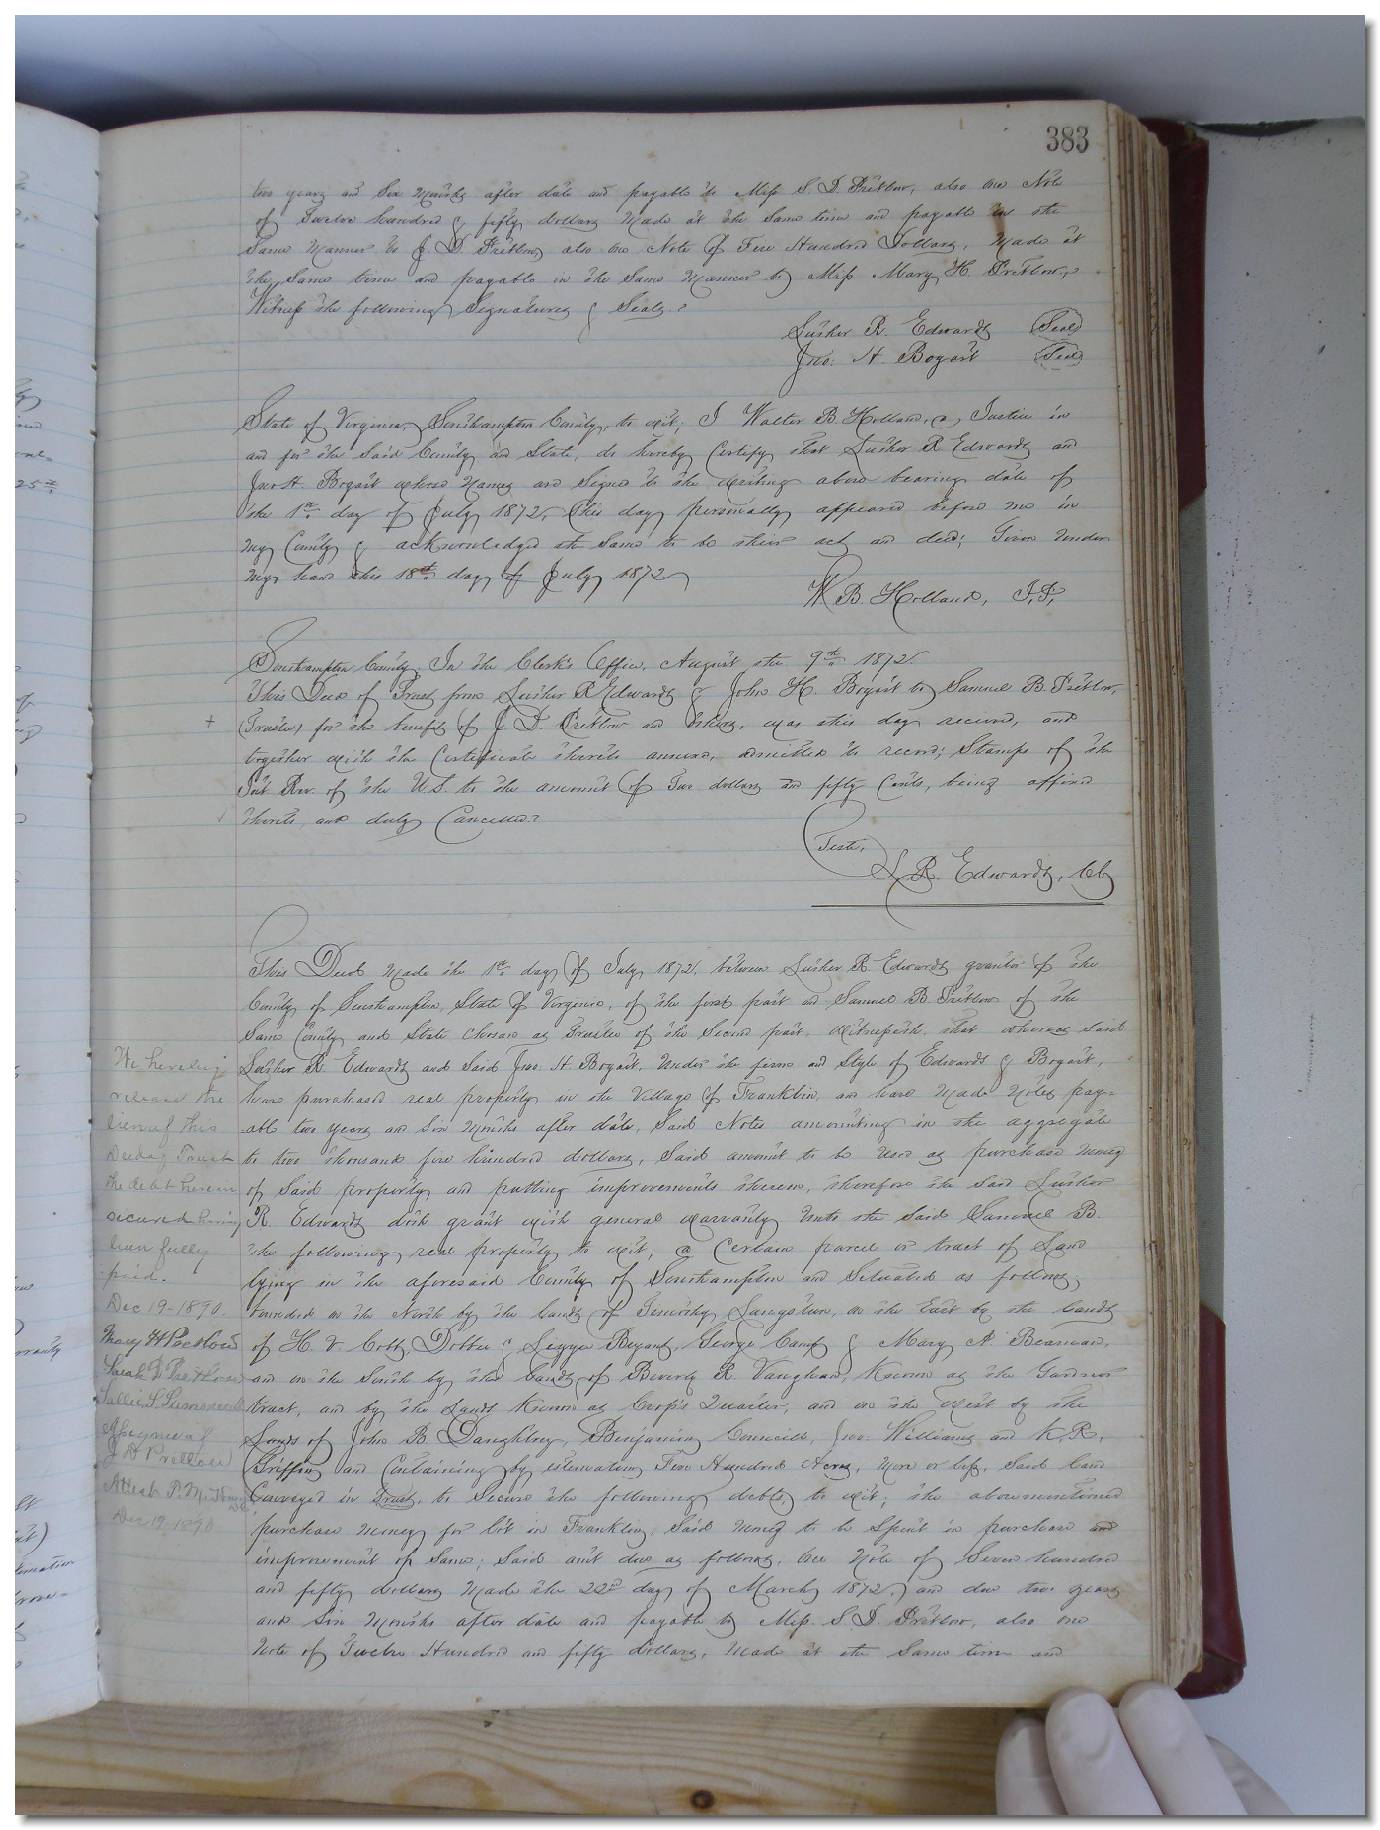 383
two years and Six Months after date and payable to Miss S D. Pretlow, also one Note
of Twelve hundred & fifty dollars Made at the Same time and payable in the
Same Manner to J. D. Pretlow also one Note of Five Hundred Dollars, Made at
the Same time and payable in the Same Manner to Miss Mary H. Pretlow,
Witness the following Signatures & Seals.
Lusher R. Edwards (Seal)
Jno. H. Bogart (Seal)
State of Virginia Southampton County, to wit; I Walter B. Holland, a, Justice in
and for the Said County and State, do hereby Certify that Lusher R Edwards and
Jno H. Bogart whose Names are Signed to the writing above bearing date of
the 1st day of July 1872, this day personally appeared before me in
My County & acknowledged the Same to be their act and deed; Given Under
My hand this 18th day of July 1872
W B. Holland, J.P.
Southampton County. In the Clerk's Office, August the 9th 1872.
This Deed of Trust from Lusher R Edwards & John H. Bogart to Samuel B. Pretlow,
+ (Trustee) for the benefit of J. D. Pretlow and others, was this day received, and
together with the Certificate thereto annexed, admitted to record; Stamps of the
Int Rev. of the U.S. to the amount of Two dollars and fifty Cents, being affixed
thereto, and duly Cancelled.
Teste,
L. R. Edwards, Clk
This Deed Made the 1st day of July 1872, between Lusher R. Edwards grantor of the
County of Southampton, State of Virginia, of the first part and Samuel B. Pretlow of the
Same County and State chosen as Trustee of the Second part, witnesseth, that whereas said
Lusher R. Edwards and Said Jno. H. Bogart, Under the firm and Style of Edwards & Bogart,
have purchased real property in the Village of Franklin, and have Made Notes pay=
able two years and Six Months after date, Said Notes amounting in the aggregate
to two thousand five hundred dollars, Said amount to be Used as purchase Money
of Said property and putting improvements thereon, therefore the Said Lusher
R. Edwards doth grant with general warranty Unto the Said Samuel B.
the following real property to wit; a Certain parcel or tract of Land
lying in the aforesaid County of Southampton and Situated as follows;
bounded on the North by the Lands of Timothy Langston, on the East by the Lands
of H. V. Cobb, & Bryant, George Camp & Mary A. Beaman,
and on the South by the Lands of Beverly R. Vaughan, Known as the Gardner
tract, and by the Lands Known as Crop's Quarter, and on the West by the
Lands of John B. Daughtrey, Benjamin Councill, Jno. Williams and K. R.
Griffin and Containing by estimation Five Hundred Acres, More or less, Said land
Conveyed in Trust, to Secure the following debts, to wit; the abovementioned
purchase Money for lot in Franklin, Said Money to be Spent in purchase and
improvement of Same; Said amt due as follows, One Note of Seven hundred
and fifty dollars Made the 22nd day of March 1872, and due two years
and Six Months after date and payable to Miss. S. D. Pretlow, also one
Note of Twelve Hundred and fifty dollars, Made at the Same time and
We hereby
release the
lien of this
Deed of Trust
the debt herein
secured having
been fully
paid.
Dec 19 - 1890.
Mary H Pretlow
Sarah D Pretlow
Sallie S.
Assignee of
J D Pretlow
Attest P. M.
Dec 19 1890